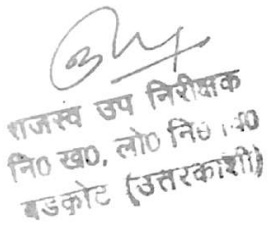 राजस्व उप निरीक्षक
नि0 ख0, लो0 नि0
बडकोट (उत्तरकाशी)